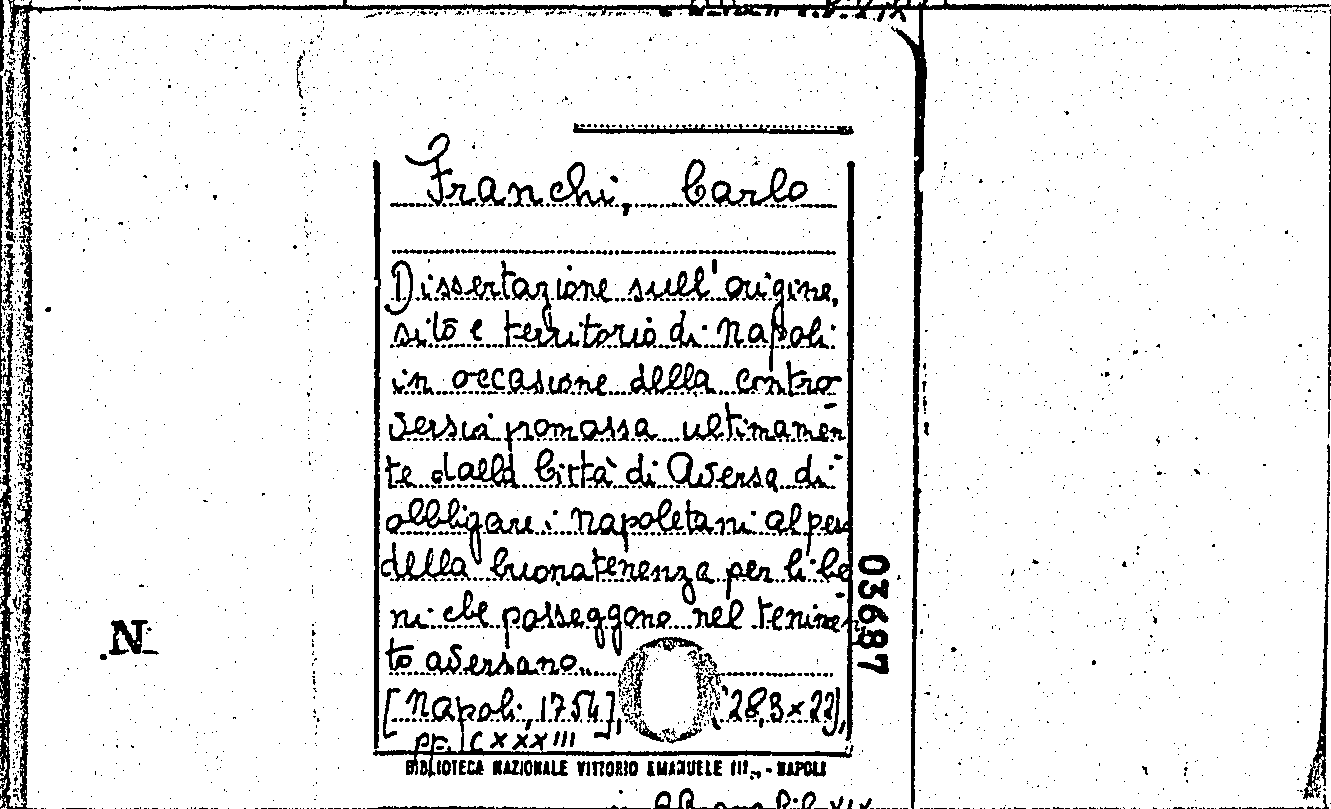 Franchi, Carlo
Dissertazione sull'origine,
sito e territorio di Napoli
in occasione della contro-
versia promossa ultimamen-
te dalla Città di Aversa di
obbligare i Napoletani al peso
della buonatenenza per li be-
ni che posseggono nel tenimen-
to aversano.
[Napoli, 1754], (28,3 x 22),
pp. CXXXIII
BIBLIOTECA NAZIONALE VITTORIO EMANUELE III - NAPOLI
03687
N